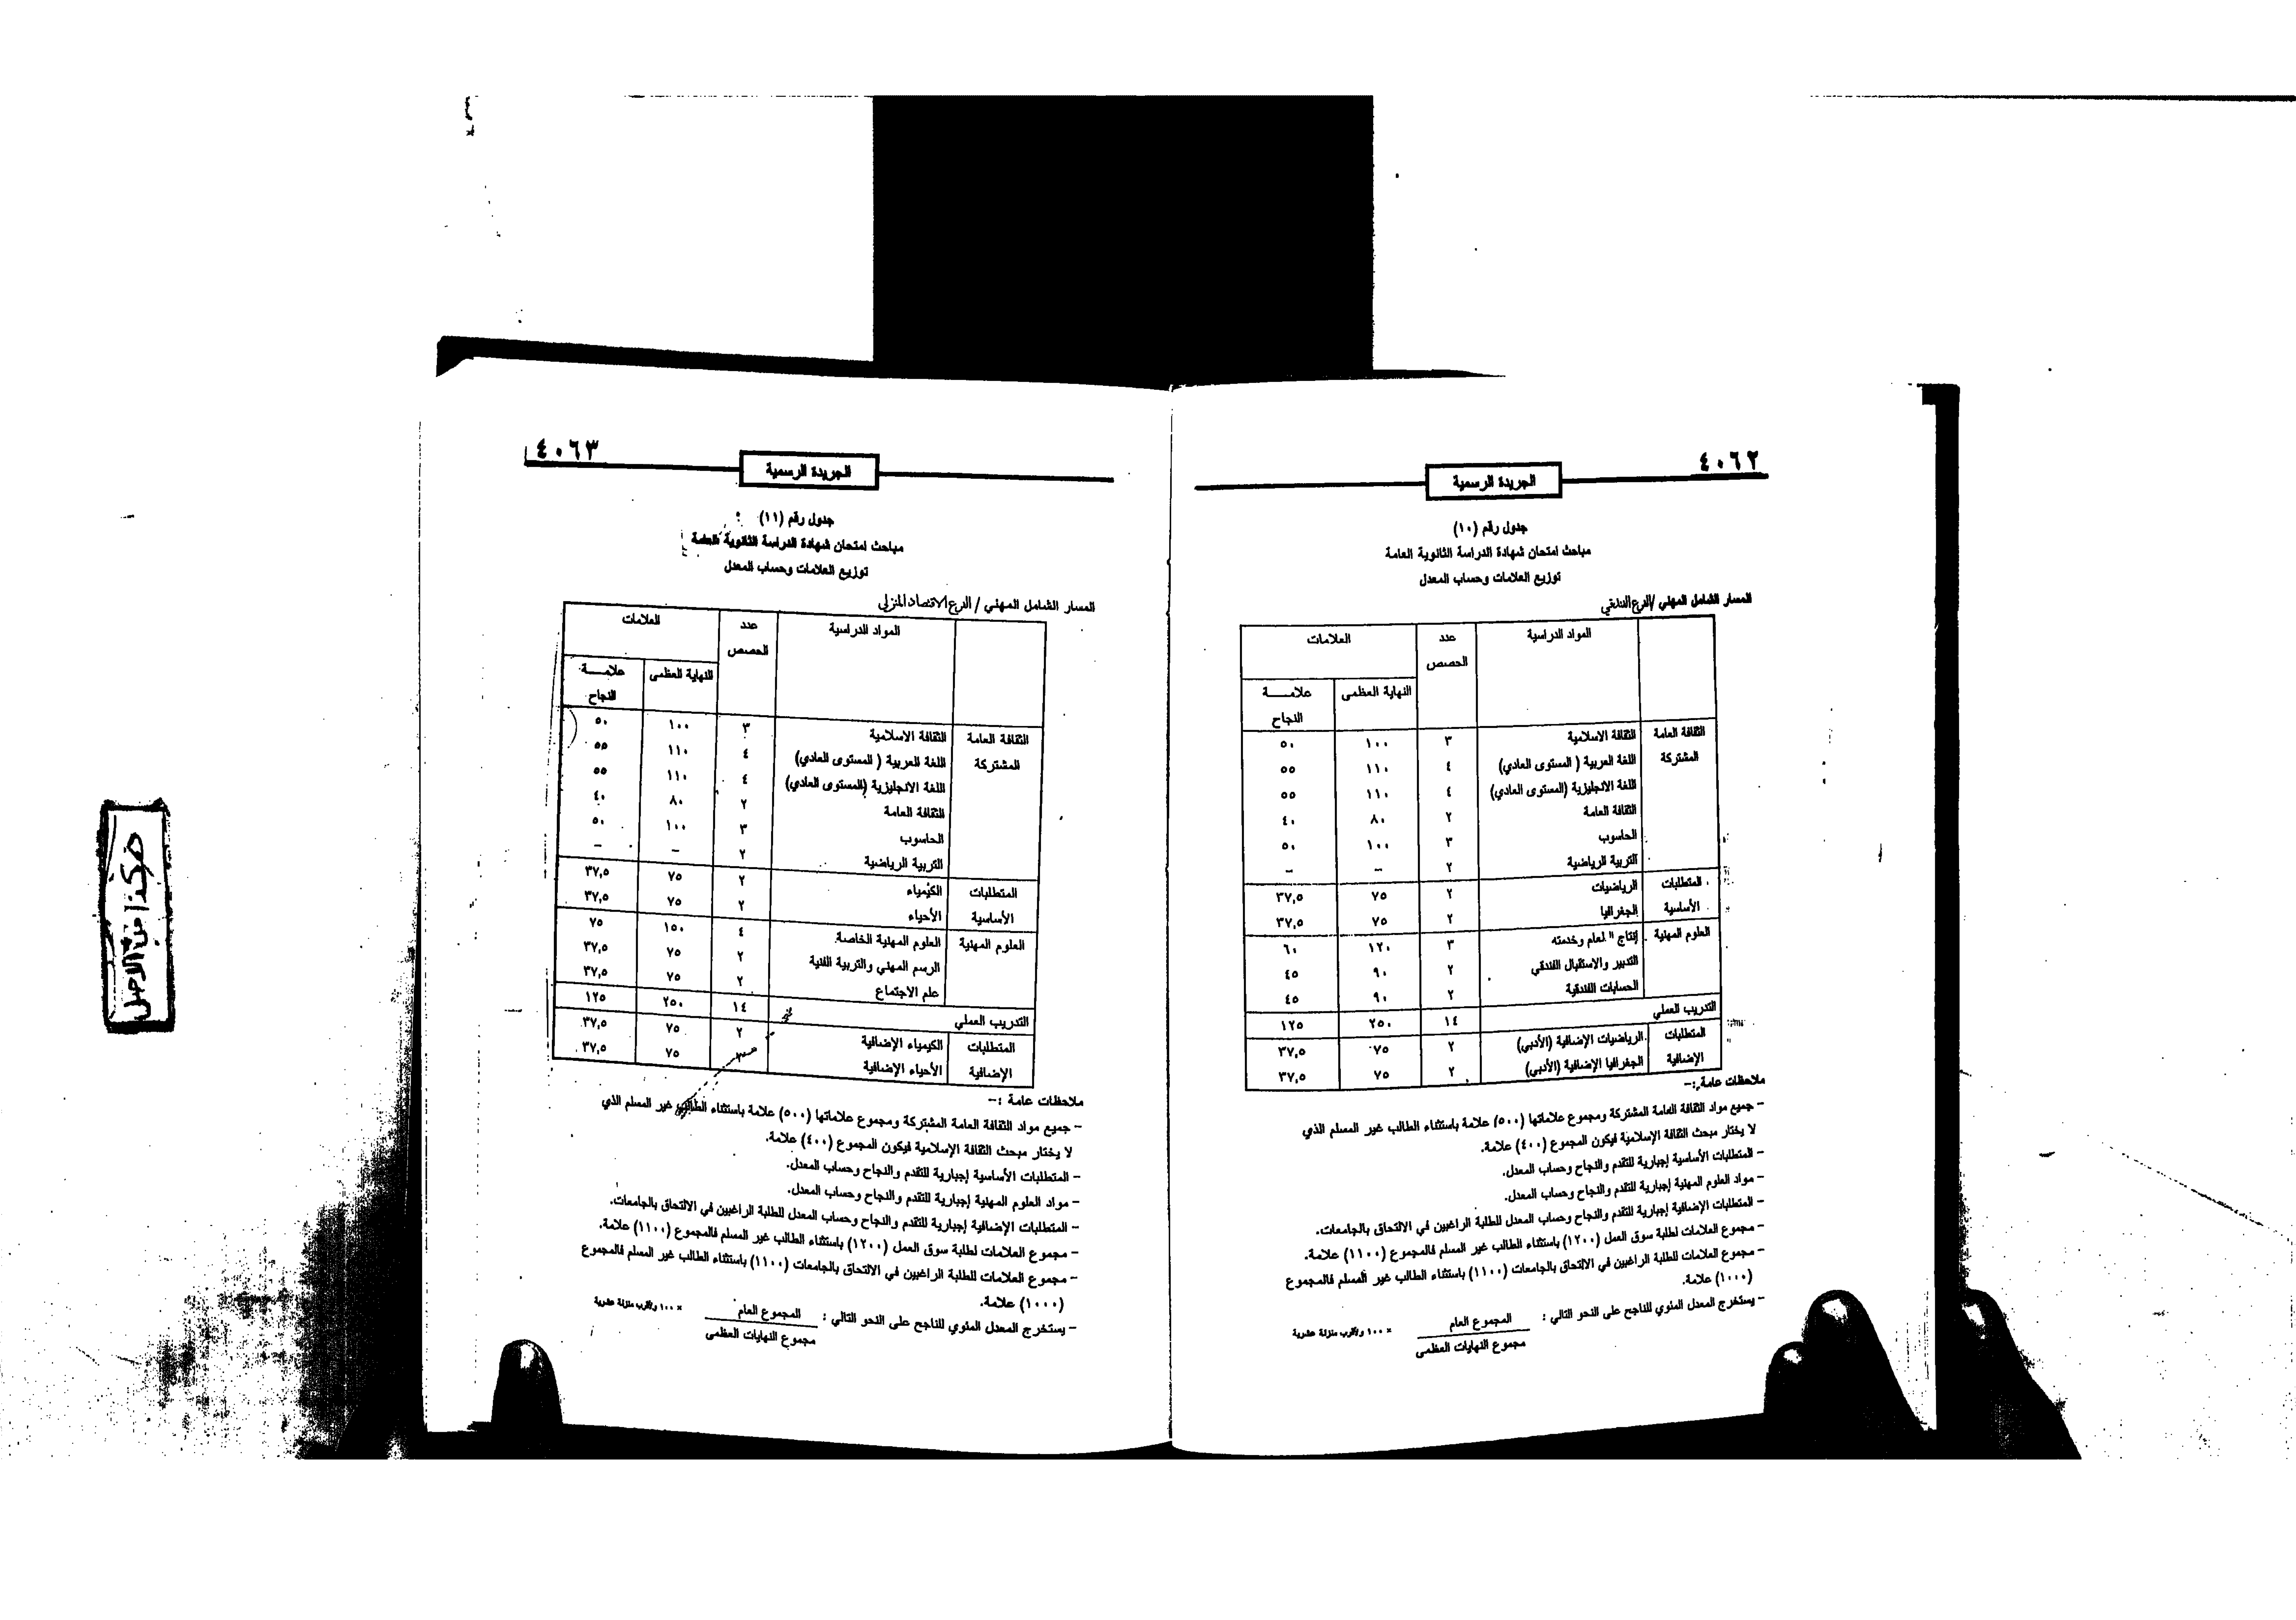 ٤٠٦٢
الجريدة الرسمية
جدول رقم (١٠)
مباحث امتحان شهادة الدراسة الثانوية العامة
توزيع العلامات وحساب المعدل
المسار الشامل المهني / الفرع الفندقي
المواد الدراسية عدد الحصص العلامات
النهاية العظمى علامـــة النجاح
الثقافة العامة الثقافة الاسلامية ٣ ١٠٠ ٥٠
المشتركة اللغة العربية ( المستوى العادي) ٤ ١١٠ ٥٥
اللغة الانجليزية (المستوى العادي) ٤ ١١٠ ٥٥
الثقافة العامة ٢ ٨٠ ٤٠
الحاسوب ٣ ١٠٠ ٥٠
التربية الرياضية ٢ – –
المتطلبات الرياضيات ٢ ٧٥ ٣٧,٥
الأساسية الجغرافيا ٢ ٧٥ ٣٧,٥
العلوم المهنية إنتاج الطعام وخدمته ٣ ١٢٠ ٦٠
التدبير والاستقبال الفندقي ٢ ٩٠ ٤٥
الحسابات الفندقية ٢ ٩٠ ٤٥
التدريب العملي ١٤ ٢٥٠ ١٢٥
المتطلبات الرياضيات الإضافية (الأدبي) ٢ ٧٥ ٣٧,٥
الإضافية الجغرافيا الإضافية (الأدبي) ٢ ٧٥ ٣٧,٥
ملاحظات عامة :–
– جميع مواد الثقافة العامة المشتركة ومجموع علاماتها (٥٠٠) علامة باستثناء الطالب غير المسلم الذي
لا يختار مبحث الثقافة الإسلامية فيكون المجموع (٤٠٠) علامة.
– المتطلبات الأساسية إجبارية للتقدم والنجاح وحساب المعدل.
– مواد العلوم المهنية إجبارية للتقدم والنجاح وحساب المعدل.
– المتطلبات الإضافية إجبارية للتقدم والنجاح وحساب المعدل للطلبة الراغبين في الالتحاق بالجامعات.
– مجموع العلامات لطلبة سوق العمل (١٢٠٠) باستثناء الطالب غير المسلم فالمجموع (١١٠٠) علامة.
– مجموع العلامات للطلبة الراغبين في الالتحاق بالجامعات (١١٠٠) باستثناء الطالب غير المسلم فالمجموع
(١٠٠٠) علامة.
– يستخرج المعدل المئوي للناجح على النحو التالي : المجموع العام × ١٠٠ ولأقرب منزلة عشرية
مجموع النهايات العظمى
٤٠٦٣
الجريدة الرسمية
جدول رقم (١١)
مباحث امتحان شهادة الدراسة الثانوية العامة
توزيع العلامات وحساب المعدل
المسار الشامل المهني / الفرع الاقتصاد المنزلي
المواد الدراسية عدد الحصص العلامات
النهاية العظمى علامـــة النجاح
الثقافة العامة الثقافة الاسلامية ٣ ١٠٠ ٥٠
المشتركة اللغة العربية ( المستوى العادي) ٤ ١١٠ ٥٥
اللغة الانجليزية (المستوى العادي) ٤ ١١٠ ٥٥
الثقافة العامة ٢ ٨٠ ٤٠
الحاسوب ٣ ١٠٠ ٥٠
التربية الرياضية ٢ – –
المتطلبات الكيمياء ٢ ٧٥ ٣٧,٥
الأساسية الأحياء ٢ ٧٥ ٣٧,٥
العلوم المهنية العلوم المهنية الخاصة ٤ ١٥٠ ٧٥
الرسم المهني والتربية الفنية ٢ ٧٥ ٣٧,٥
علم الاجتماع ٢ ٧٥ ٣٧,٥
التدريب العملي ١٤ ٢٥٠ ١٢٥
المتطلبات الكيمياء الإضافية ٢ ٧٥ ٣٧,٥
الإضافية الأحياء الإضافية ٢ ٧٥ ٣٧,٥
ملاحظات عامة :–
– جميع مواد الثقافة العامة المشتركة ومجموع علاماتها (٥٠٠) علامة باستثناء الطالب غير المسلم الذي
لا يختار مبحث الثقافة الإسلامية فيكون المجموع (٤٠٠) علامة.
– المتطلبات الأساسية إجبارية للتقدم والنجاح وحساب المعدل.
– مواد العلوم المهنية إجبارية للتقدم والنجاح وحساب المعدل.
– المتطلبات الإضافية إجبارية للتقدم والنجاح وحساب المعدل للطلبة الراغبين في الالتحاق بالجامعات.
– مجموع العلامات لطلبة سوق العمل (١٢٠٠) باستثناء الطالب غير المسلم فالمجموع (١١٠٠) علامة.
– مجموع العلامات للطلبة الراغبين في الالتحاق بالجامعات (١١٠٠) باستثناء الطالب غير المسلم فالمجموع
(١٠٠٠) علامة.
– يستخرج المعدل المئوي للناجح على النحو التالي : المجموع العام × ١٠٠ ولأقرب منزلة عشرية
مجموع النهايات العظمى
هكذا من الاصل